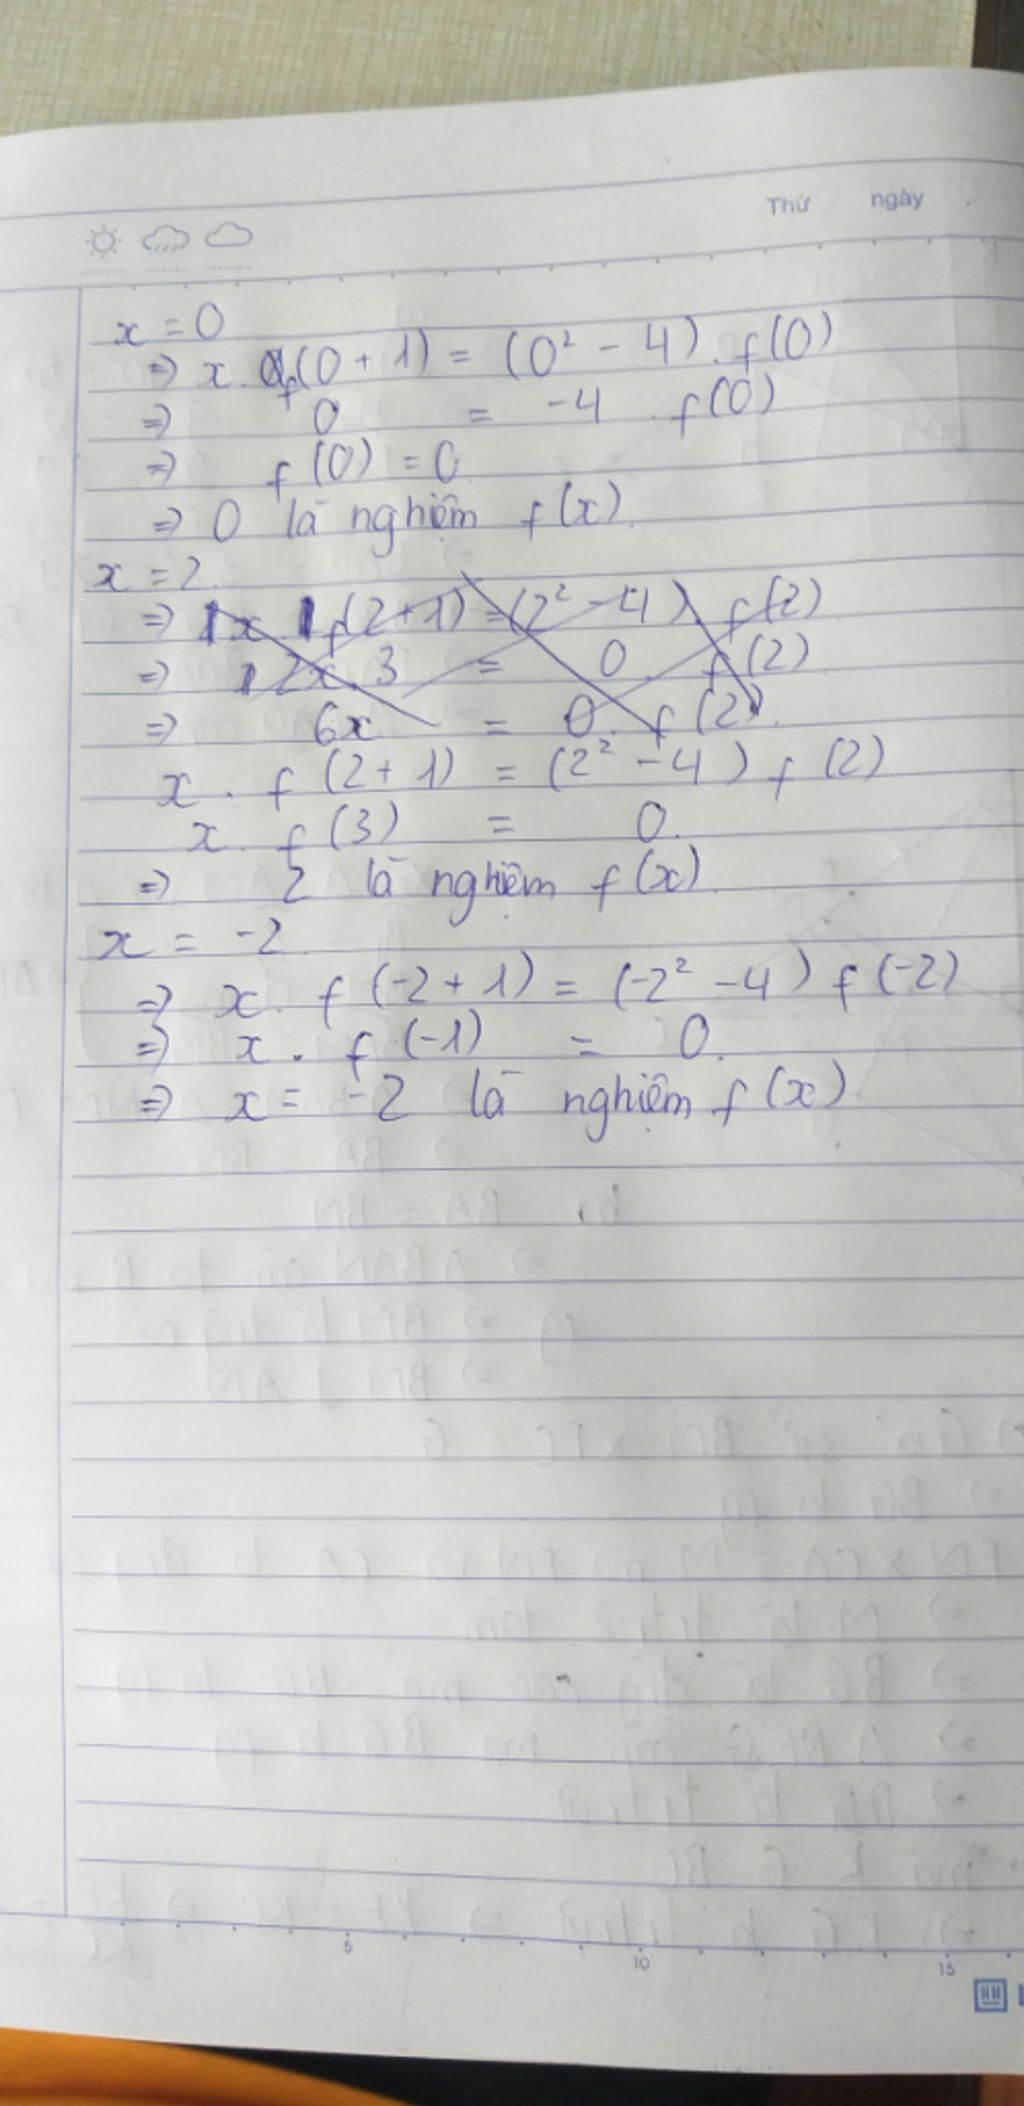 Thứ ngày
x = 0
=> x. f(0 + 1) = (0² - 4). f(0)
=> 0 = -4 . f(0)
=> f(0) = 0
=> 0 là nghiệm f(x).
x = 2.
=> 1x 1f(2+1) = (2² - 4). f(2)
=> 2x.3 = 0. f(2)
=> 6x = 0. f(2).
x . f(2+1) = (2² - 4) f(2)
x. f(3) = 0.
=> 2 là nghiệm f(x)
x = -2.
=> x. f(-2+1) = (-2² - 4) f(-2)
=> x . f(-1) = 0.
=> x = -2 là nghiệm f(x).
5 10 15